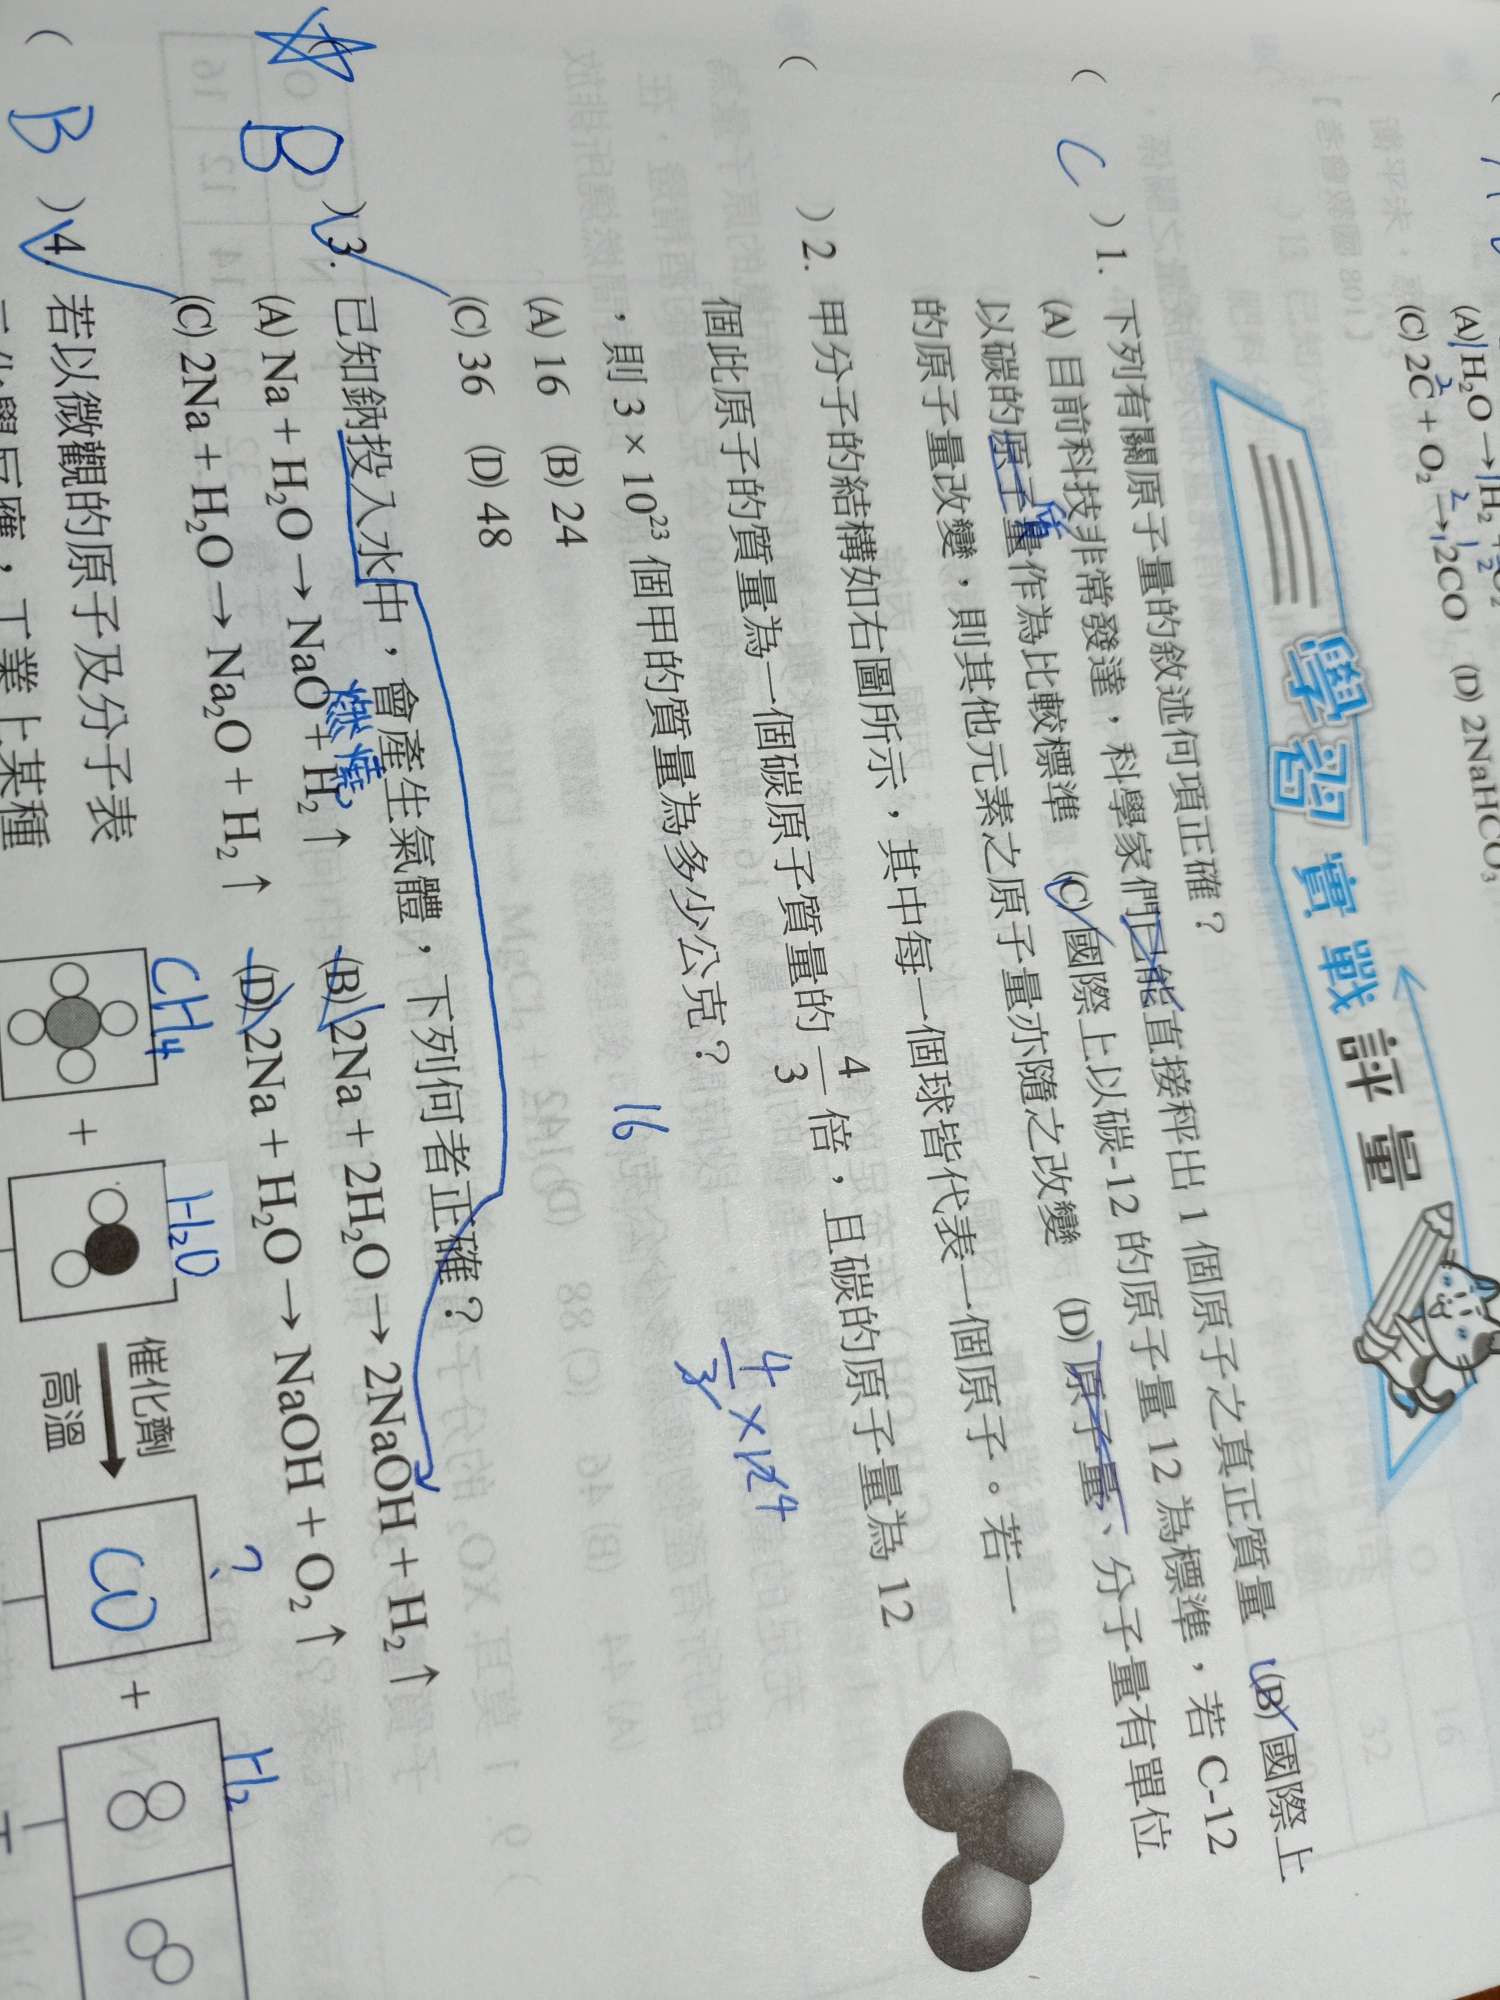 (A) H₂O → H₂ + ½O₂
(C) 2C + O₂ → 2CO (D) 2NaHCO₃
學習實戰評量
( C ) 1. 下列有關原子量的敘述何項正確？
(A) 目前科技非常發達，科學家們已能直接秤出 1 個原子之真正質量 (B) 國際上
以碳的原子量作為比較標準 (C) 國際上以碳-12 的原子量 12 為標準，若 C-12
質
的原子量改變，則其他元素之原子量亦隨之改變 (D) 原子量、分子量有單位
( ) 2. 甲分子的結構如右圖所示，其中每一個球皆代表一個原子。若一
個此原子的質量為一個碳原子質量的 4/3 倍，且碳的原子量為 12
，則 3 × 10²³ 個甲的質量為多少公克？
4/3 × 12 4
16
(A) 16 (B) 24
(C) 36 (D) 48
( B ) 3. 已知鈉投入水中，會產生氣體，下列何者正確？
燃燒
(A) Na + H₂O → NaO + H₂↑ (B) 2Na + 2H₂O → 2NaOH + H₂↑
(C) 2Na + H₂O → Na₂O + H₂↑ (D) 2Na + H₂O → NaOH + O₂↑
( B ) 4. 若以微觀的原子及分子表
CH₄ H₂O ? H₂
+ 催化劑 高溫 CO +